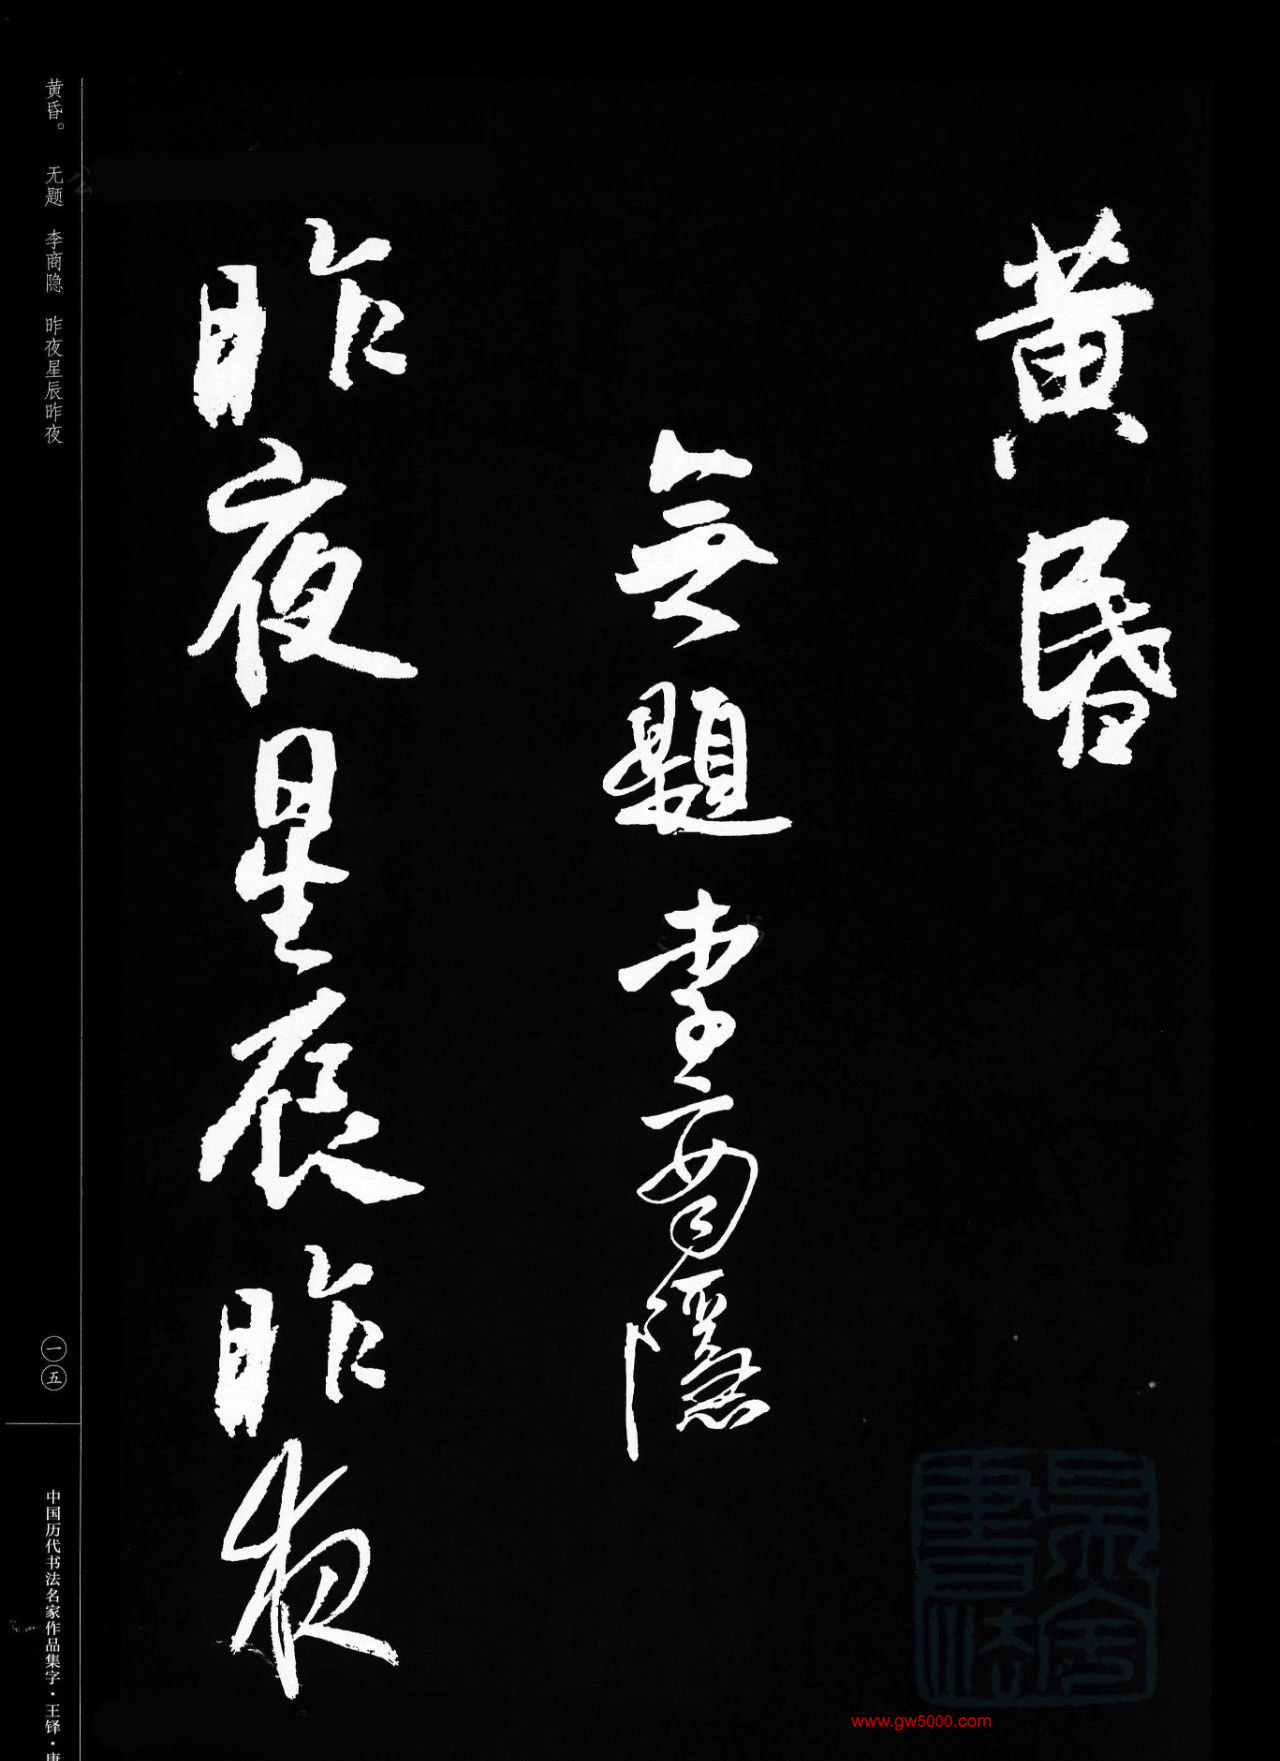 黄昏
無題 李商隱
昨夜星辰昨夜
黄昏。 无题 李商隐 昨夜星辰昨夜
一五
中国历代书法名家作品集字·王铎·唐
www.gw5000.com